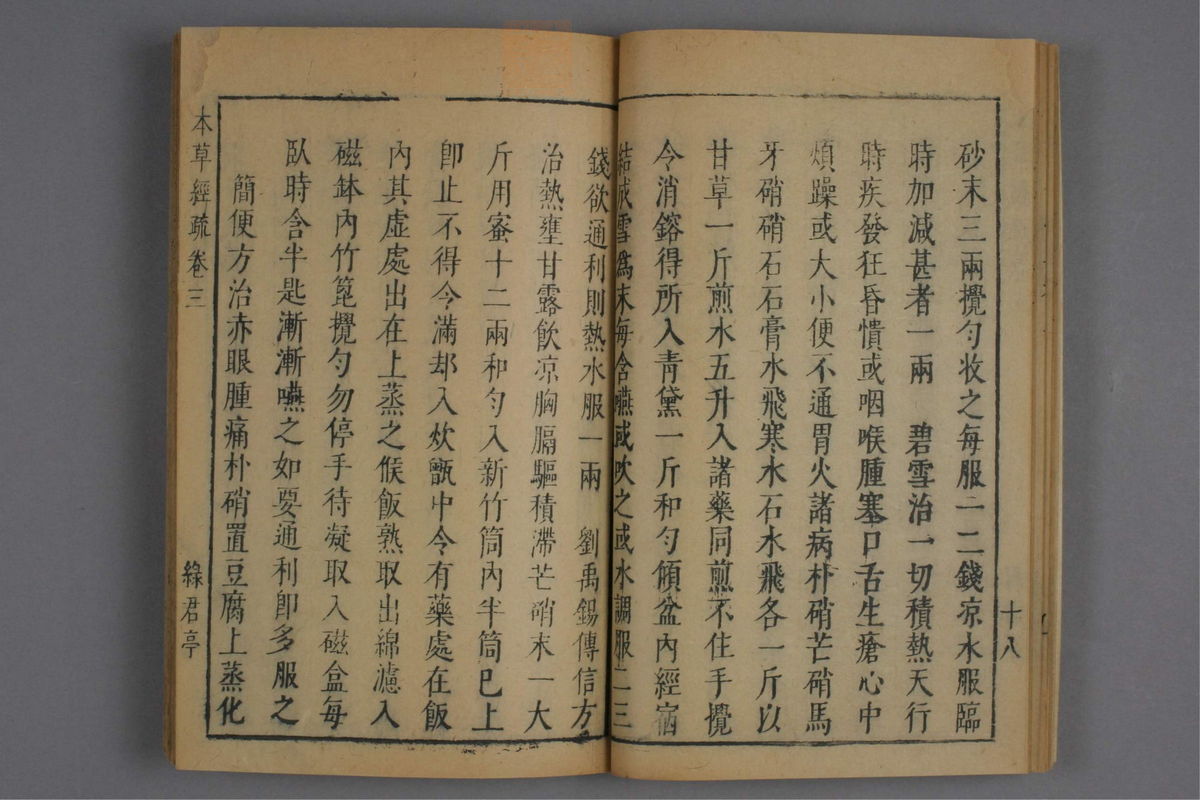 十八
砂末三兩攪勻收之每服一二錢凉水服臨
時加減甚者一兩　碧雪治一切積熱天行
時疾發狂昏憒或咽喉腫塞口舌生瘡心中
煩躁或大小便不通胃火諸病朴硝芒硝馬
牙硝硝石石膏水飛寒水石水飛各一斤以
甘草一斤煎水五升入諸藥同煎不住手攪
令消鎔得所入青黛一斤和勻傾盆內經宿
結成雪爲末每含嚥或吹之或水調服二三
錢欲通利則熱水服一兩　劉禹錫傳信方
治熱壅甘露飲凉胸膈驅積滯芒硝末一大
斤用蜜十二兩和勻入新竹筒內半筒已上
卽止不得令滿却入炊甑中令有藥處在飯
內其虛處出在上蒸之候飯熟取出綿濾入
磁鉢內竹篦攪勻勿停手待凝取入磁盒每
臥時含半匙漸漸嚥之如要通利卽多服之
簡便方治赤眼腫痛朴硝置豆腐上蒸化
本草經疏卷三
綠君亭